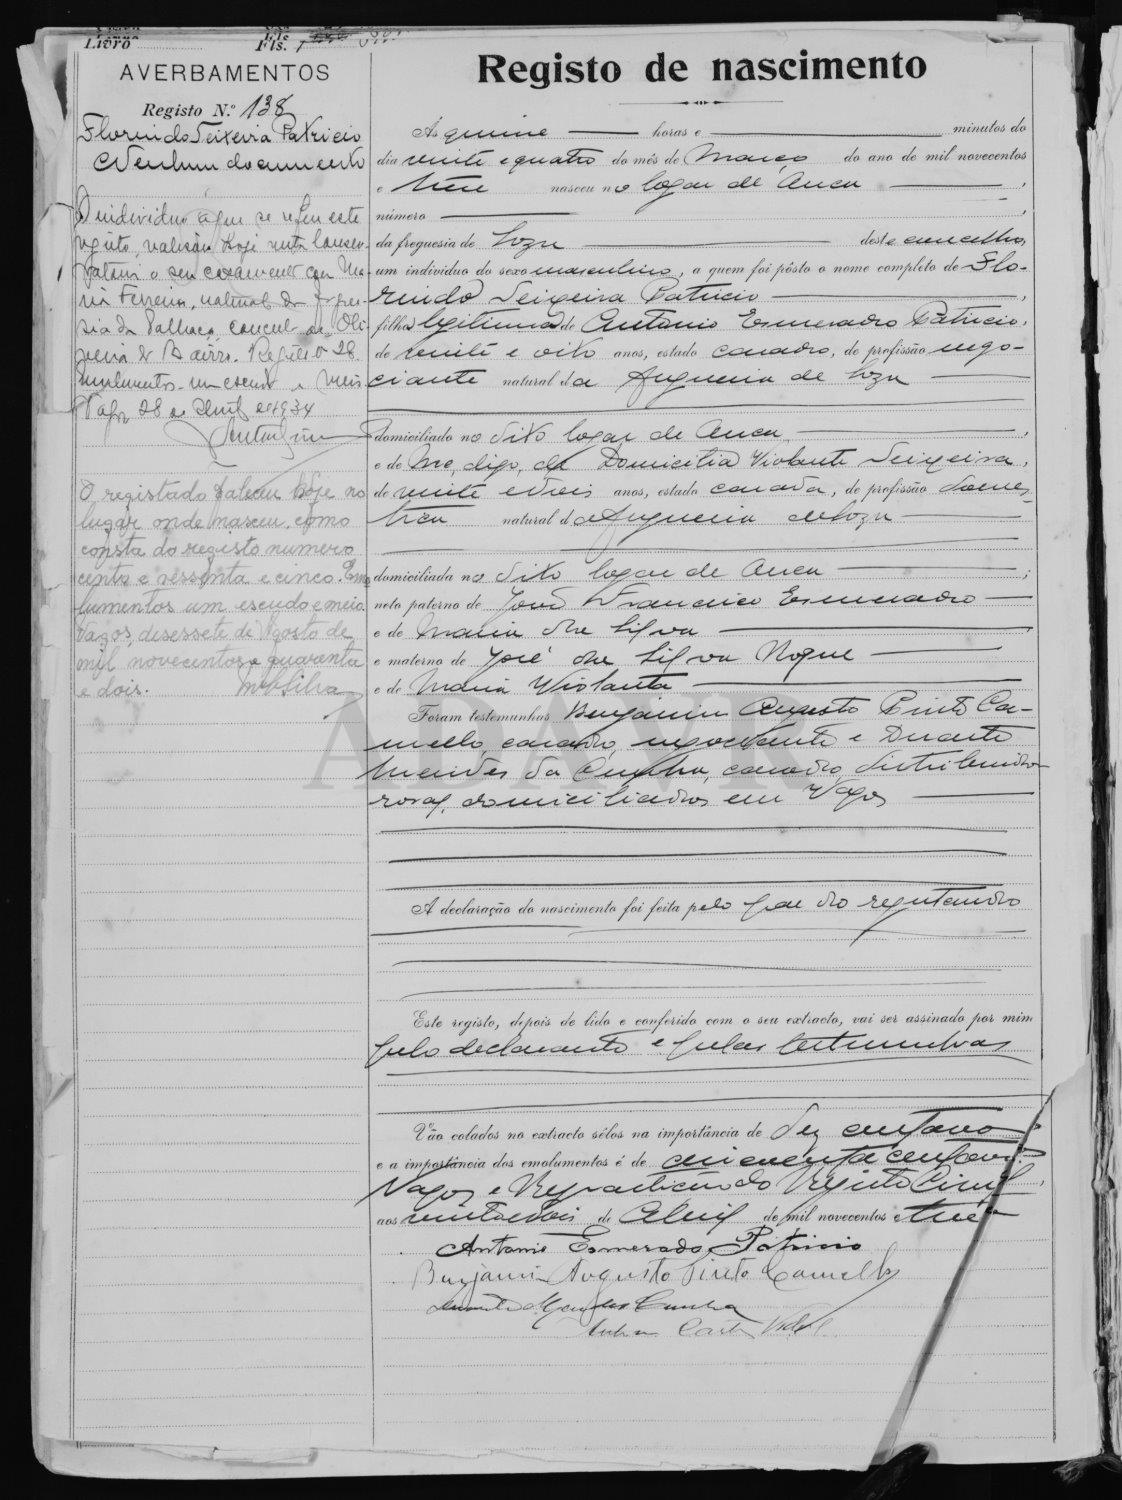 Livro
Fls.
AVERBAMENTOS
Registo N.º 138
Florindo Teixeira Patricio
Nenhum documento
O individuo a que se refere este
registo, realisou hoje nesta Conser-
vatoria o seu casamento com Ma-
ria Ferreira, natural da fregue-
sia da Palhaça, concelho de Oli-
veira do Bairro. Registo nº 28.
Emolumentos um escudo e meio
Vagos 28 de Abril de 1934
O registado faleceu hoje no
lugar onde nasceu, como
consta do registo numero
cento e sessenta e cinco. Emo-
lumentos um escudo e meio.
Vagos, desessete de Agosto de
mil novecentos e quarenta
e dois. Silva
Registo de nascimento
Ás quinze horas e minutos do
dia vinte e quatro do mês de Março do ano de mil novecentos
e treze nasceu no logar de
número
da freguesia de Soza deste concelho,
um individuo do sexo masculino, a quem foi pôsto o nome completo de Flo-
rindo Teixeira Patricio,
filho legitimo de Antonio Esmerado Patricio,
de vinte e oito anos, estado casado, de profissão nego-
ciante natural da freguesia de Soza
domiciliado no dito logar de
e de Me, digo, de Domicilia Violante Teixeira,
de vinte e dois anos, estado casada, de profissão domes-
tica natural da freguesia de Soza
domiciliada no dito logar de ;
neto paterno de José Francisco Esmerado
e de Maria da Silva
e materno de José da Silva Roque
e de Maria Violanta
Foram testemunhas Benjamin Augusto Pinto Ca-
mello, casado, negociante e Duarte
Mendes da Cunha, casado, distribuidor
rural, domiciliados em Vagos
A declaração do nascimento foi feita pelo pae do registando
Este registo, depois de lido e conferido com o seu extracto, vai ser assinado por mim
pelo declarante e pelas testemunhas
Vão colados no extracto sêlos na importância de dez centavos
e a importância dos emolumentos é de cincoenta centavos.
Vagos e Repartição do Registo Civil,
aos vinte e dois de Abril de mil novecentos e treze
Antonio Esmerado Patricio
Benjamin Augusto Pinto Camello
Duarte Mendes Cunha
ADAVR